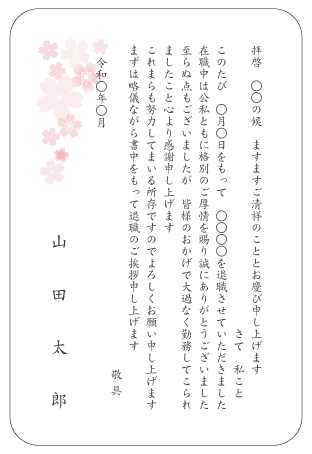 拝啓　〇〇の候　ますますご清祥のこととお慶び申し上げます
さて　私こと
このたび　〇月〇日をもって　〇〇〇〇を退職させていただきました
在職中は公私ともに格別のご厚情を賜り誠にありがとうございました
至らぬ点もございましたが　皆様のおかげで大過なく勤務してこられ
ましたこと心より感謝申し上げます
これまらも努力してまいる所存ですのでよろしくお願い申し上げます
まずは略儀ながら書中をもって退職のご挨拶申し上げます
敬具
令和〇年〇月
山田太郎